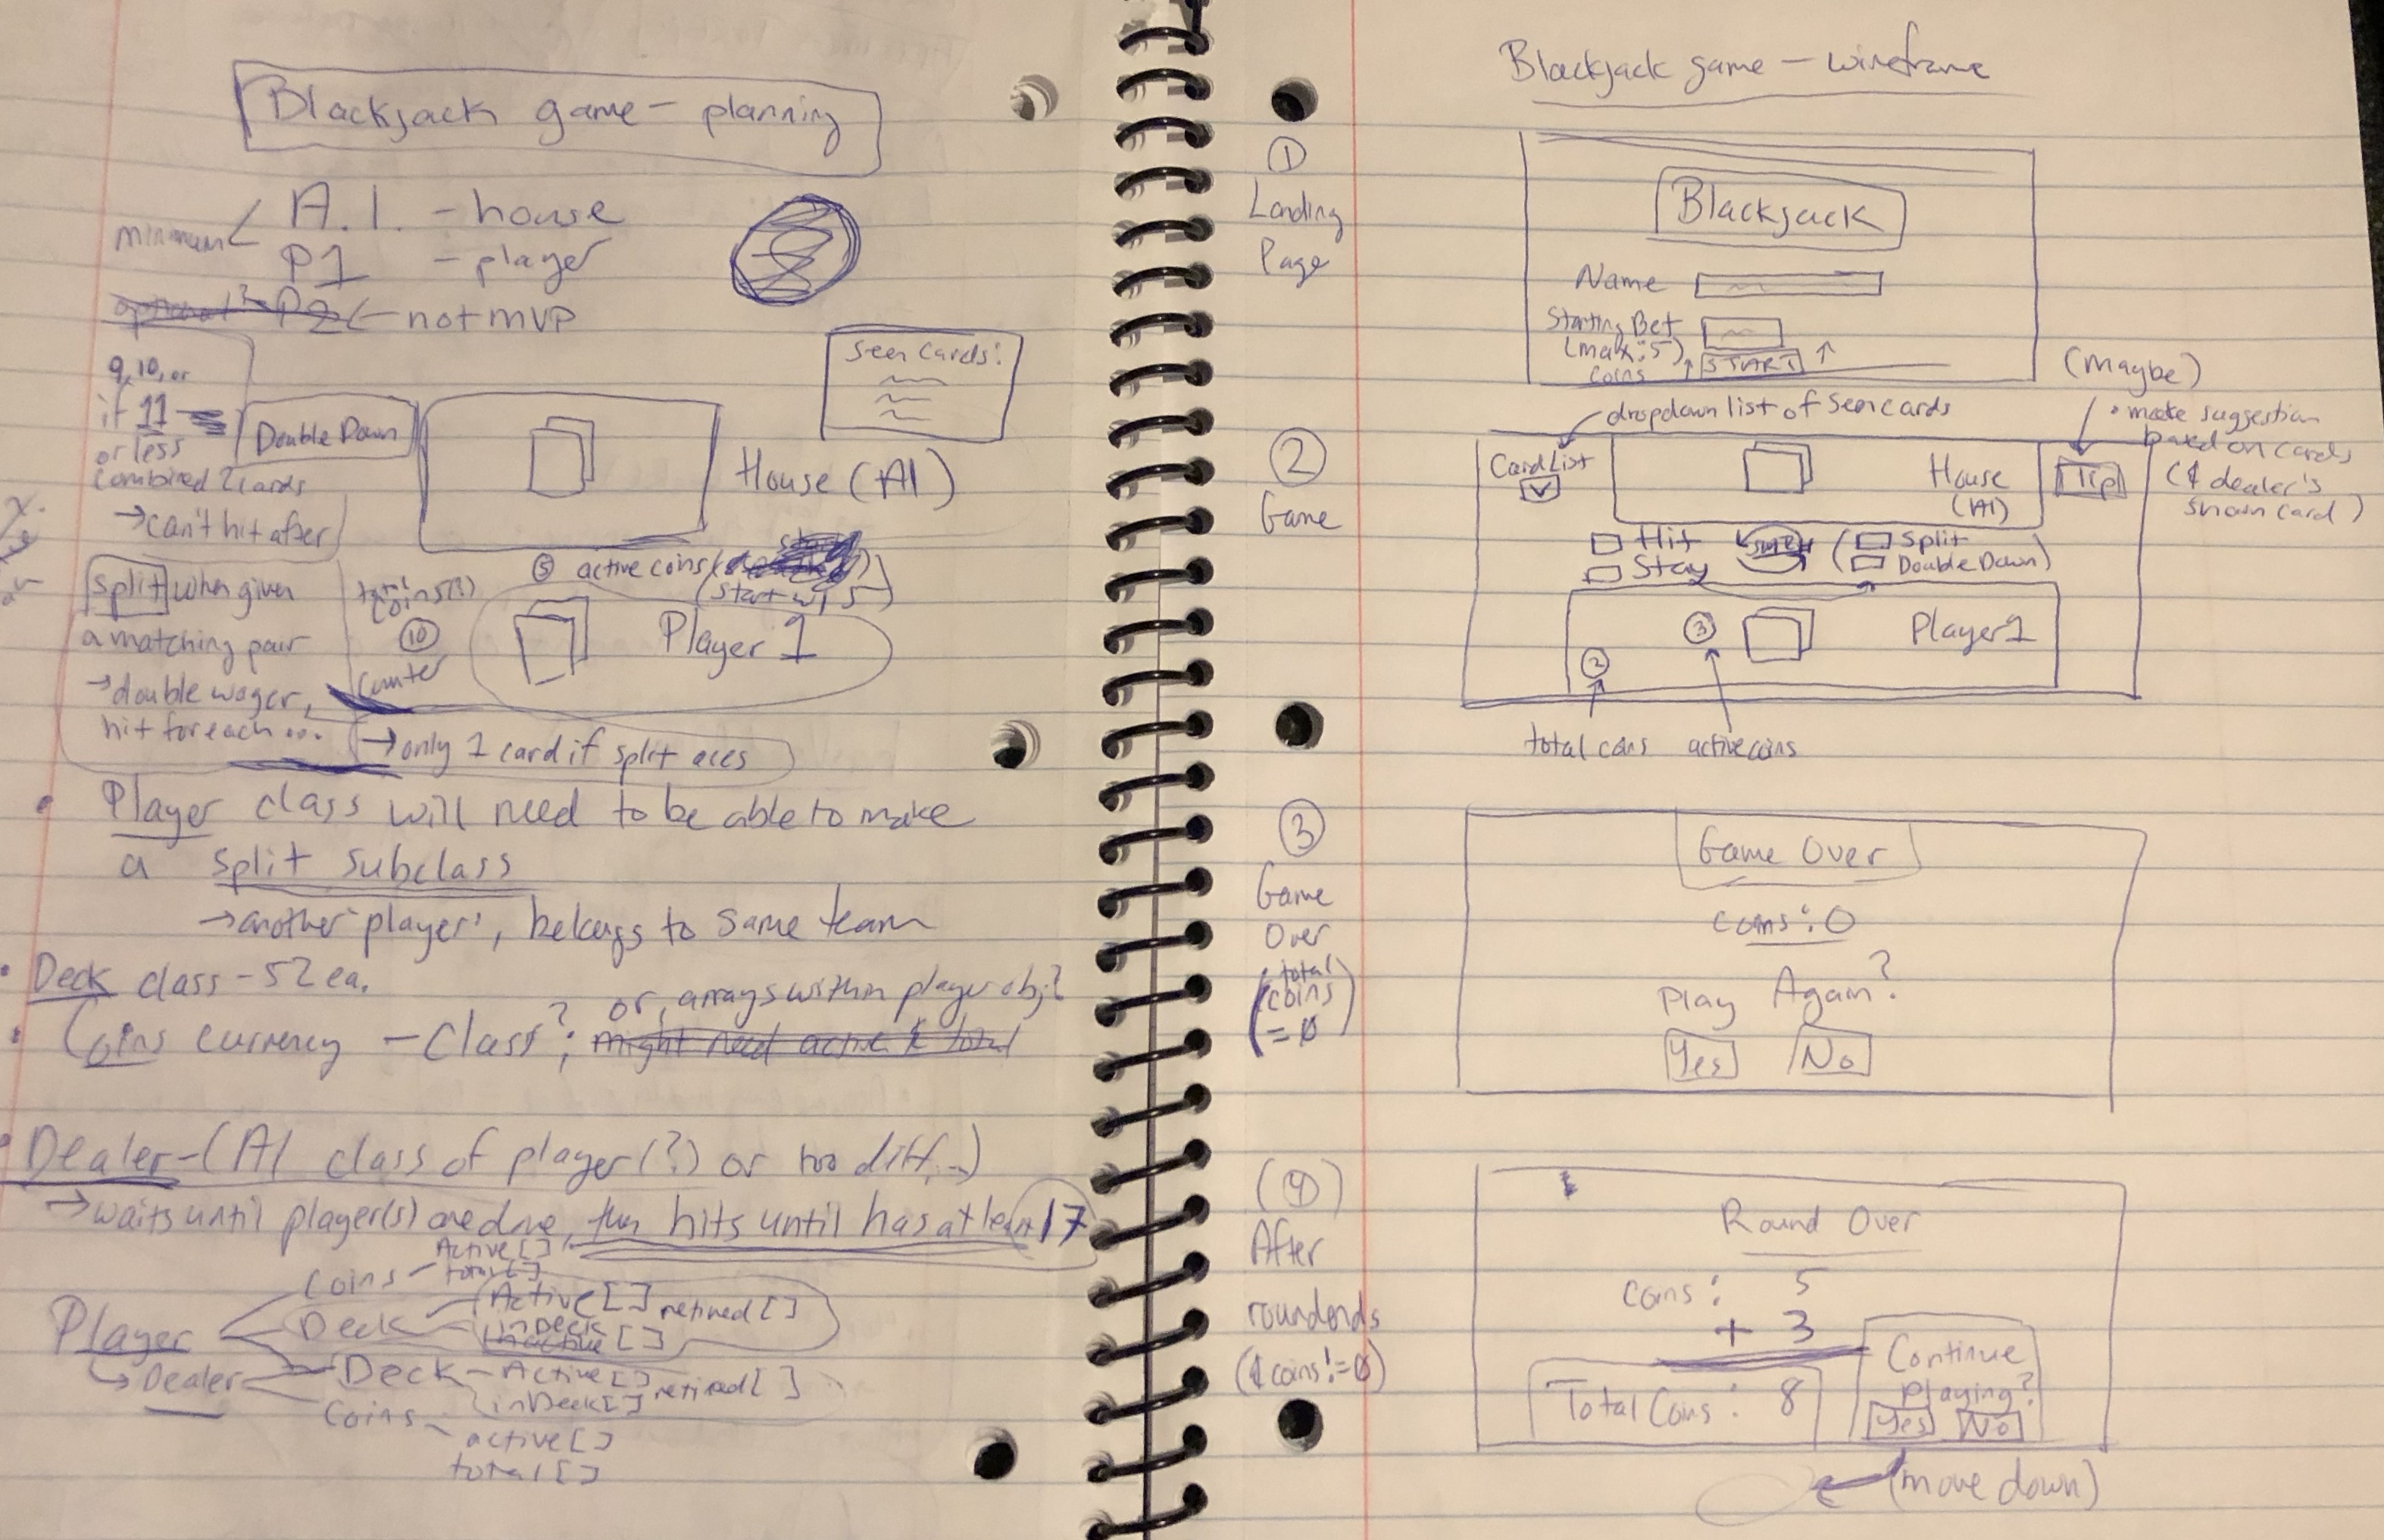 Blackjack game - planning
minimum < A.I. - house
P1 - player
P2 ← not MVP
Seen Cards:
9, 10, or
if 11
or less
combined 2 cards
→ can't hit after
Double Down
House (AI)
⑤ active coins
(start w/ 5)
Split when given
a matching pair
→ double wager,
hit for each ...
→ only 1 card if split aces
total coins(?)
⑩
counter
Player 1
• Player class will need to be able to make
a split subclass
→ another "player", belongs to same team
• Deck class - 52 ea.
• Coins currency - Class?; or, arrays within player obj?
might need active & total
• Dealer - (AI class of player(?) or too diff...)
→ waits until player(s) are done, then hits until has at least 17
Player
Coins - Active[]
total[]
Deck - Active[] retired[]
inDeck
inactive[]
↳ Dealer
Deck - Active[] retired[]
inDeck[]
Coins - active[]
total[]
Blackjack game - wireframe
① Landing Page
Blackjack
Name
Starting Bet
(max: 5)
coins
START
② Game
dropdown list of seen cards
(Maybe)
• make suggestion
based on cards
(& dealer's
shown card)
Card List
House
(AI)
Tip
Hit
Stay
(Split
Double Down)
③
②
Player 1
total coins
active coins
③ Game Over (total coins = 0)
Game Over
coins: 0
Play Again?
Yes No
(4) After round ends (& coins != 0)
Round Over
coins: 5
+ 3
Total Coins: 8
Continue
playing?
Yes No
(move down)